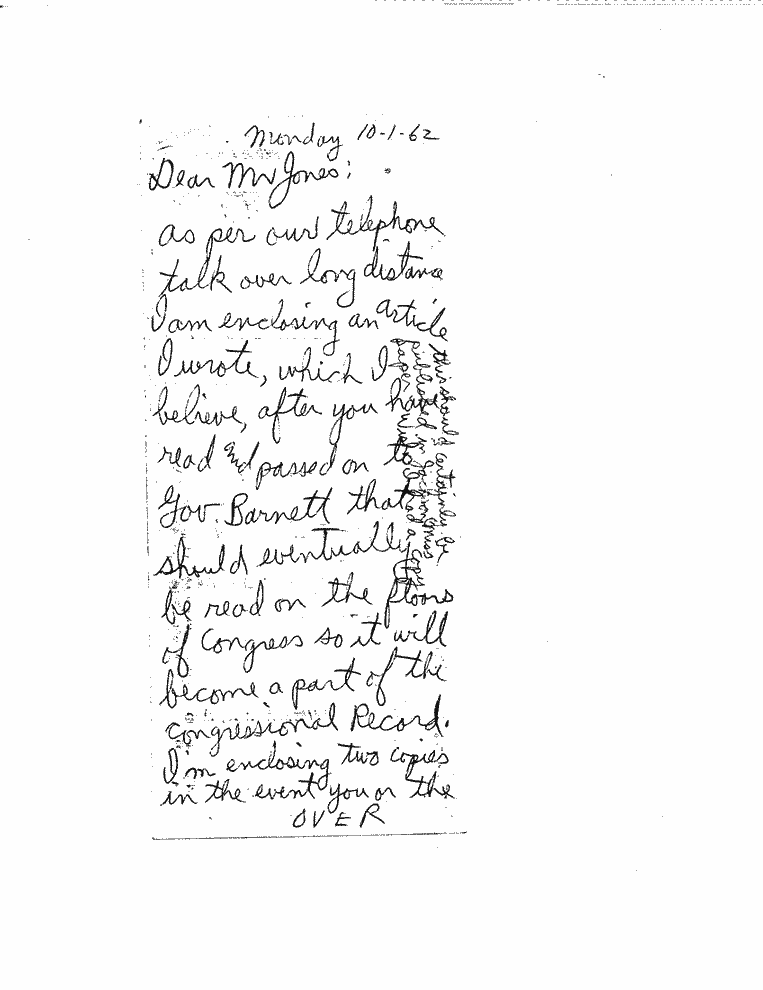 Monday 10-1-62
Dear Mr Jones:
as per our telephone
talk over long distance
I am enclosing an article
I wrote, which I
believe, after you have
read and passed on to
Gov. Barnett that
should eventually
be read on the floors
of Congress so it will
become a part of the
Congressional Record.
I'm enclosing two copies
in the event you or the
OVER
this should certainly be
published in Jackson Miss
paper
had a copy